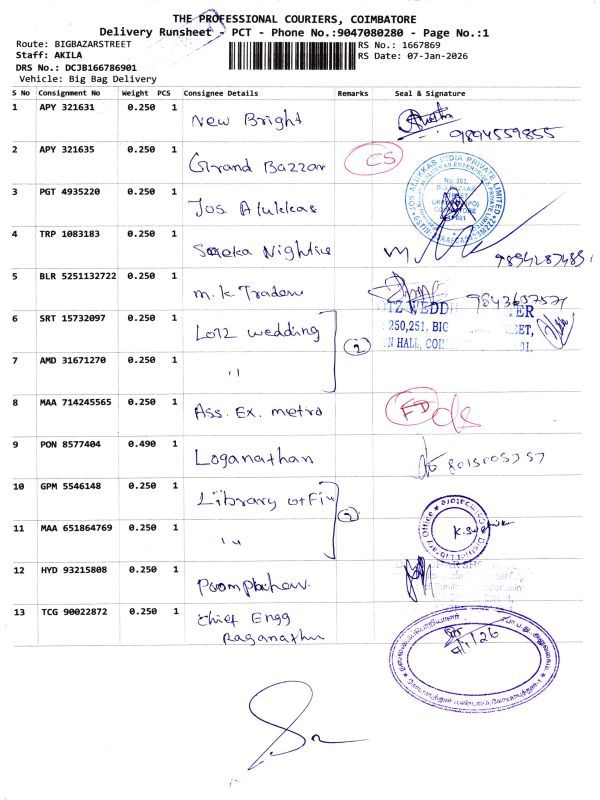 THE PROFESSIONAL COURIERS, COIMBATORE
Delivery Runsheet - PCT - Phone No.:9047080280 - Page No.:1
Route: BIGBAZARSTREET
RS No.: 1667869
Staff: AKILA
RS Date: 07-Jan-2026
DRS No.: DCJB166786901
Vehicle: Big Bag Delivery
S No Consignment No Weight PCS Consignee Details Remarks Seal & Signature
1 APY 321631 0.250 1 New Bright
9894559855
2 APY 321635 0.250 1 Grand Bazzar CS
3 PGT 4935220 0.250 1 Jos Alukkas
JOS ALUKKAS INDIA PRIVATE LIMITED
4 TRP 1083183 0.250 1 Nighties
5 BLR 5251132722 0.250 1 m.k Traders
6 SRT 15732097 0.250 1 Lotz wedding
250,251. BIG
7 AMD 31671270 0.250 1 "
2
8 MAA 714245565 0.250 1 Ass. Ex. metro
9 PON 8577404 0.490 1 Loganathan
10 GPM 5546148 0.250 1 Library
2
11 MAA 651864769 0.250 1 "
District Library Office
12 HYD 93215808 0.250 1
13 TCG 90022872 0.250 1 chief Engg
Raganathu